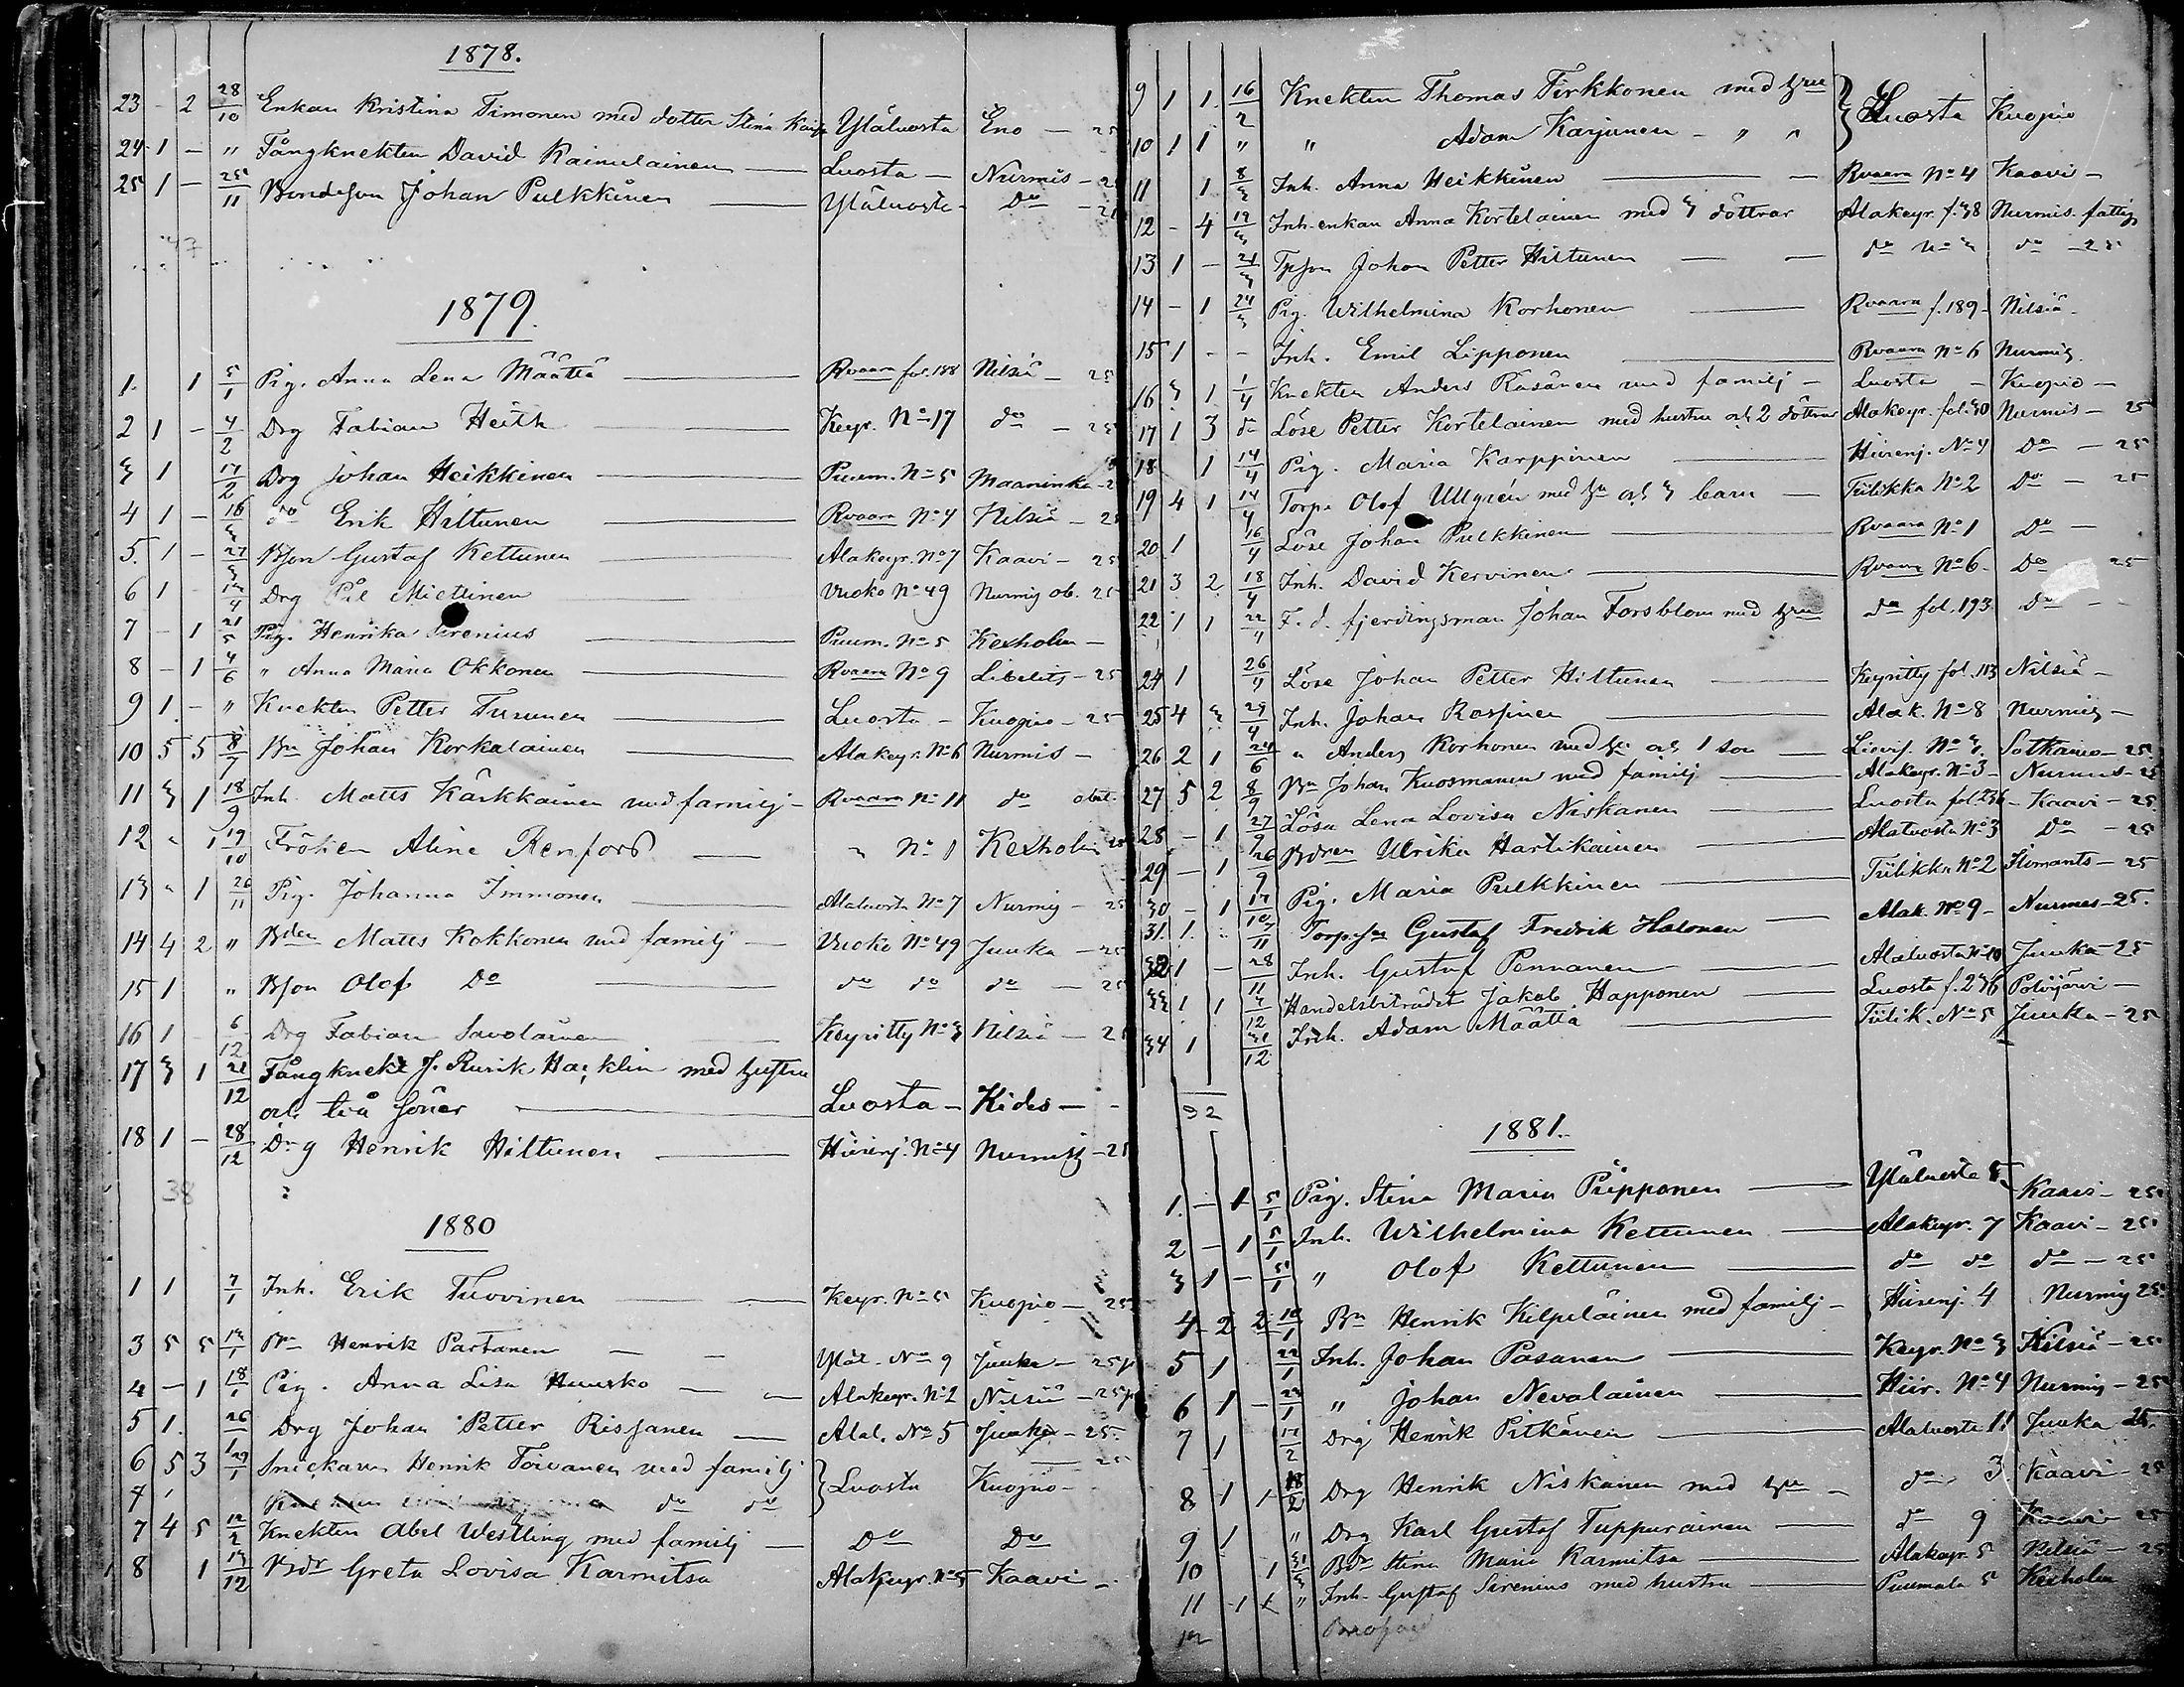 1878.
23 - 2 28/10 Enkan Kristina Timonen med dotter Stina Kaisa Yläluosta Eno - 25
24 1 - " Fångknekten David Kainulainen Luosta - Nurmis - 25
25 1 - 25/11 Bondeson Johan Pulkkinen Ylåluosta Do - 25
47
1879.
1. 1 5/1 Pig. Anna Lena Määttä Rvaara fol. 188 Nilsiä - 25
2 1 - 4/2 Drg Fabian Heith Keyr. No 17 do - 25
3 1 17/2 Drg Johan Heikkinen Puum. No 5 Maaninka - 2
4 1 - 16/3 do Erik Hiltunen Rvaara No 4 Nilsiä - 25
5. 1 - 27/3 Bson Gustaf Kettunen Alakeyr. No 7 Kaavi - 25
6 1 - 17/4 Drg Pål Miettinen Vuoko No 49 Nurmis ob. 25
7 - 1 21/5 Pig. Henrika Sirenius Puum. No 5 Kexholm -
8 - 1 4/6 " Anna Maria Okkonen Rvaara No 9 Libelits - 25
9 1. - " Knekten Petter Turunen Luosta - Kuopio - 25
10 5 5 8/7 Bn Johan Korkalainen Alakeyr. No 6 Nurmis -
11 3 1 18/9 Inh. Matts Kärkkäinen med familj - Rvaara No 11 do obet.
12 " 1 19/10 Fröken Aline Renfors " No 1 Kexholm 25
13 " 1 26/11 Pig. Johanna Immonen Alaluosta No 7 Nurmis - 25
14 4 2 " Bden Matts Kokkonen med familj - Vuoko No 49 Juuka - 25
15 1 " Bson Olof Do do do do - 25
16 1 6/12 Drg Fabian Savolainen Keyritty No 3 Nilsiä - 25
17 3 1 21/12 Fångknekt J. Rurik Hacklin med hustru
och två söner Luosta - Kides -
18 1 - 28/12 Drg Henrik Hiltunen Hiirenj. No 4 Nurmis - 25
38
1880
1 1 7/1 Inh. Erik Tuovinen Keyr. No 5 Kuopio - 25
3 5 5 13/1 Bn Henrik Partanen Yläl. No 9 Juuka - 25 p
4 - 1 18/1 Pig. Anna Lisa Huusko Alakeyr. No 2 Nilsiä - 25 p
5 1. 26/1 Drg Johan Petter Rissanen Alal. No 5 Juuka - 25.
6 5 3 29/1 Snickaren Henrik Toivanen med familj } Luosta Kuopio -
7 Knekten do do
7 4 5 12/2 Knekten Abel Westling med familj - Do Do
8 1 13/12 Bdr Greta Lovisa Karmitsa Alakeyr. No 5 Kaavi -
9 1 1. 16/2 Knekten Thomas Tirkkonen med hru } Luosta Kuopio
10 1 1 " " Adam Karjunen - " "
11 1 8/3 Inh. Anna Heikkinen Rvaara No 4 Kaavi -
12 - 4 19/3 Inh. enkan Anna Kortelainen med 3 döttrar Alakeyr. f. 38 Nurmis. fattig
13 1 - 21/3 Tpson Johan Petter Hiltunen do No 3 do - 25
14 - 1 24/3 Pig. Wilhelmina Korhonen Rvaara f. 189 Nilsiä -
15 1 - - Inh. Emil Lipponen Rvaara No 6 Nurmis
16 3 1 1/4 Knekten Anders Räsänen med familj - Luosta - Kuopio -
17 1 3 do Löse Petter Kortelainen med hustru och 2 döttrar Alakeyr. fol. 30 Nurmis - 25
18 1 14/4 Pig. Maria Karppinen Hiirenj. No 4 Do - 25
19 4 1 14/4 Torp. Olof Ullgrén med hu och 3 barn - Tiilikka No 2 Do - 25
20. 1 16/4 Löse Johan Pulkkinen Rvaara No 1 Do -
21 3 2 18/4 Inh. David Kervinen Rvaara No 6 - Do 25
22 1 1 22/4 F. d. fjerdingsman Johan Forsblom med hru do fol. 193. Do -
24 1 26/4 Löse Johan Petter Hiltunen Keyritty fol. 113 Nilsiä -
25 4 3 29/4 Inh. Johan Rossinen Alak. No 8 Nurmis -
26 2 1 24/6 " Anders Korhonen med hu och 1 son No 3. Sotkamo - 25.
27 5 2 8/9 Bn Johan Kuosmanen med familj Alakeyr. No 3 - Nurmes - 25
28 - 1 27/9 Lösa Lena Lovisa Niskanen Luosta fol. 236 - Kaavi - 25.
29 - 1 26/9 Bdren Ulrika Hartikainen Alaluosta No 3 Do - 25
30 - 1 17/10 Pig. Maria Pulkkinen Tiilikka No 2 Ilomants - 25
31. 1. Torpson Gustaf Fredrik Halonen Alak. No 9 - Nurmes - 25.
32 1 - 28/11 Inh. Gustaf Pennanen Alaluosta No 10 Juuka - 25
33 1 1 3/12 Handelsbiträdet Jakob Happonen Luosta f. 236 Polvijärvi -
34 1 31/12 Inh. Adam Määttä Tiilik. No 5 Juuka - 25
32
1881.
1. - 1 5/1 Pig. Stina Maria Piipponen Yläluosta 5 Kaavi - 25
2 - 1 5/1 Inh. Wilhelmina Kettunen Alakeyr. 7 Kaavi - 25
3 1 - 5/1 " Olof Kettunen do do do - 25
4 - 2 2 10/1 Bn Henrik Kilpeläinen med familj - Hiirenj. 4 Nurmis 25
5 1 22/1 Inh. Johan Pasanen Keyr. No 3 Nilsiä - 25
6 1 - 29/1 " Johan Nevalainen Hiir. No 4 Nurmis - 25
7 1 17/2 Drg Henrik Pitkänen Alaluosta 11 Juuka 25.
8 1 1 18/2 Drg Henrik Niskanen med hru - do 3. Kaavi - 25
9 1 " Drg Karl Gustaf Tuppurainen do 9 Kaavi - 25
10 1 31/3 Bdr Stina Maria Karmitsa Alakeyr. 5 Nilsiä - 25
11 1 1 " Inh. Gustaf Sirenius med hustru Puumala 5 Kexholm
12